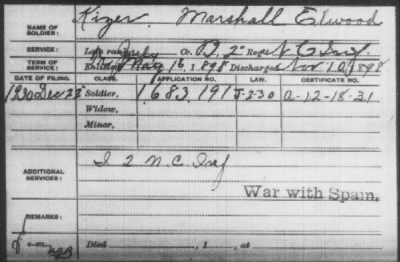 NAME OF SOLDIER: Kizer, Marshall Elwood
SERVICE: Late rank, Co. B, 2" Reg't N. C. Inf
TERM OF SERVICE: Enlisted May 16, 1898 Discharged Nov 10, 1898
DATE OF FILING. CLASS. APPLICATION NO. LAW. CERTIFICATE NO.
1930 Dec 23 Soldier, 1,683,191 J-2-30 a-12-18-31
Widow,
Minor,
ADDITIONAL SERVICES: I 2 N. C. Inf
War with Spain.
REMARKS:
Died , 1 , at